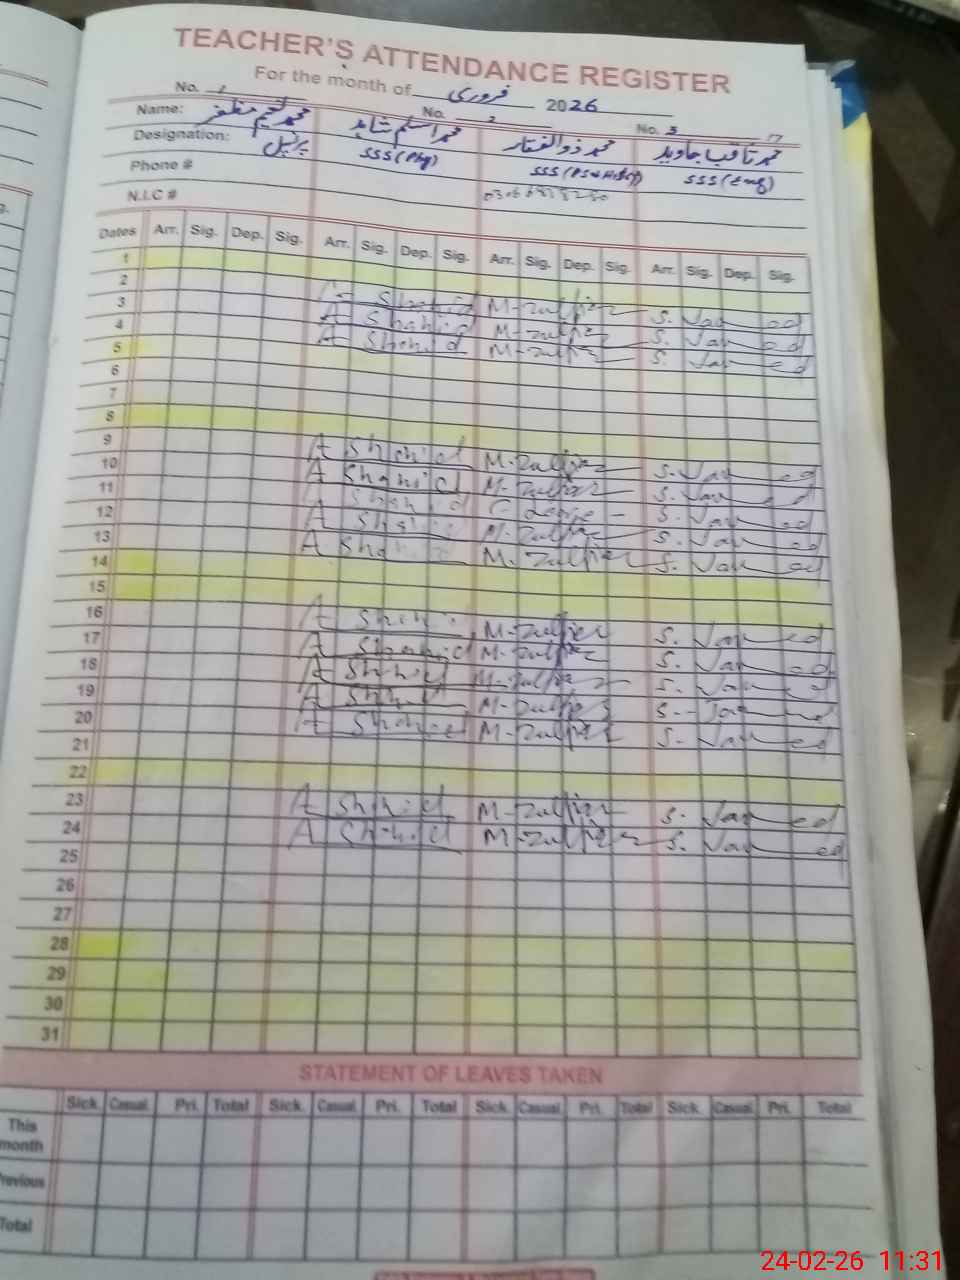 TEACHER'S ATTENDANCE REGISTER
For the month of فروری 2026
No. 1 No. 2 No. 3 17
Name: محمد نعیم مظفر محمد اسلم شاہد محمد ذوالفقار محمد ثاقب جاوید
Designation: پرنسپل SSS (Phy) SSS (Eng)
Phone #
N.I.C #
Dates Arr. Sig. Dep. Sig. Arr. Sig. Dep. Sig. Arr. Sig. Dep. Sig. Arr. Sig. Dep. Sig.
1
2
3 A Shahid M-Zulfiqar S. Javed
4 A Shahid M-Zulfiqar S. Javed
5 A Shahid M-Zulfiqar S. Javed
6
7
8
9
10 A Shahid M-Zulfiqar S. Javed
11 A Shahid M-Zulfiqar S. Javed
12 Shahid S. Javed
13 A Shahid M-Zulfiqar S. Javed
14 A Shahid M-Zulfiqar S. Javed
15
16
17 A Shahid M-Zulfiqar S. Javed
18 A Shahid M-Zulfiqar S. Javed
19 A Shahid M-Zulfiqar S. Javed
20 A Shahid M-Zulfiqar S. Javed
21 A Shahid M-Zulfiqar S. Javed
22
23 A Shahid M-Zulfiqar S. Javed
24 A Shahid M-Zulfiqar S. Javed
25
26
27
28
29
30
31
STATEMENT OF LEAVES TAKEN
Sick. Casual. Pri. Total Sick. Casual. Pri. Total Sick. Casual. Pri. Total Sick. Casual. Pri. Total
This month
Previous
Total
24-02-26 11:31